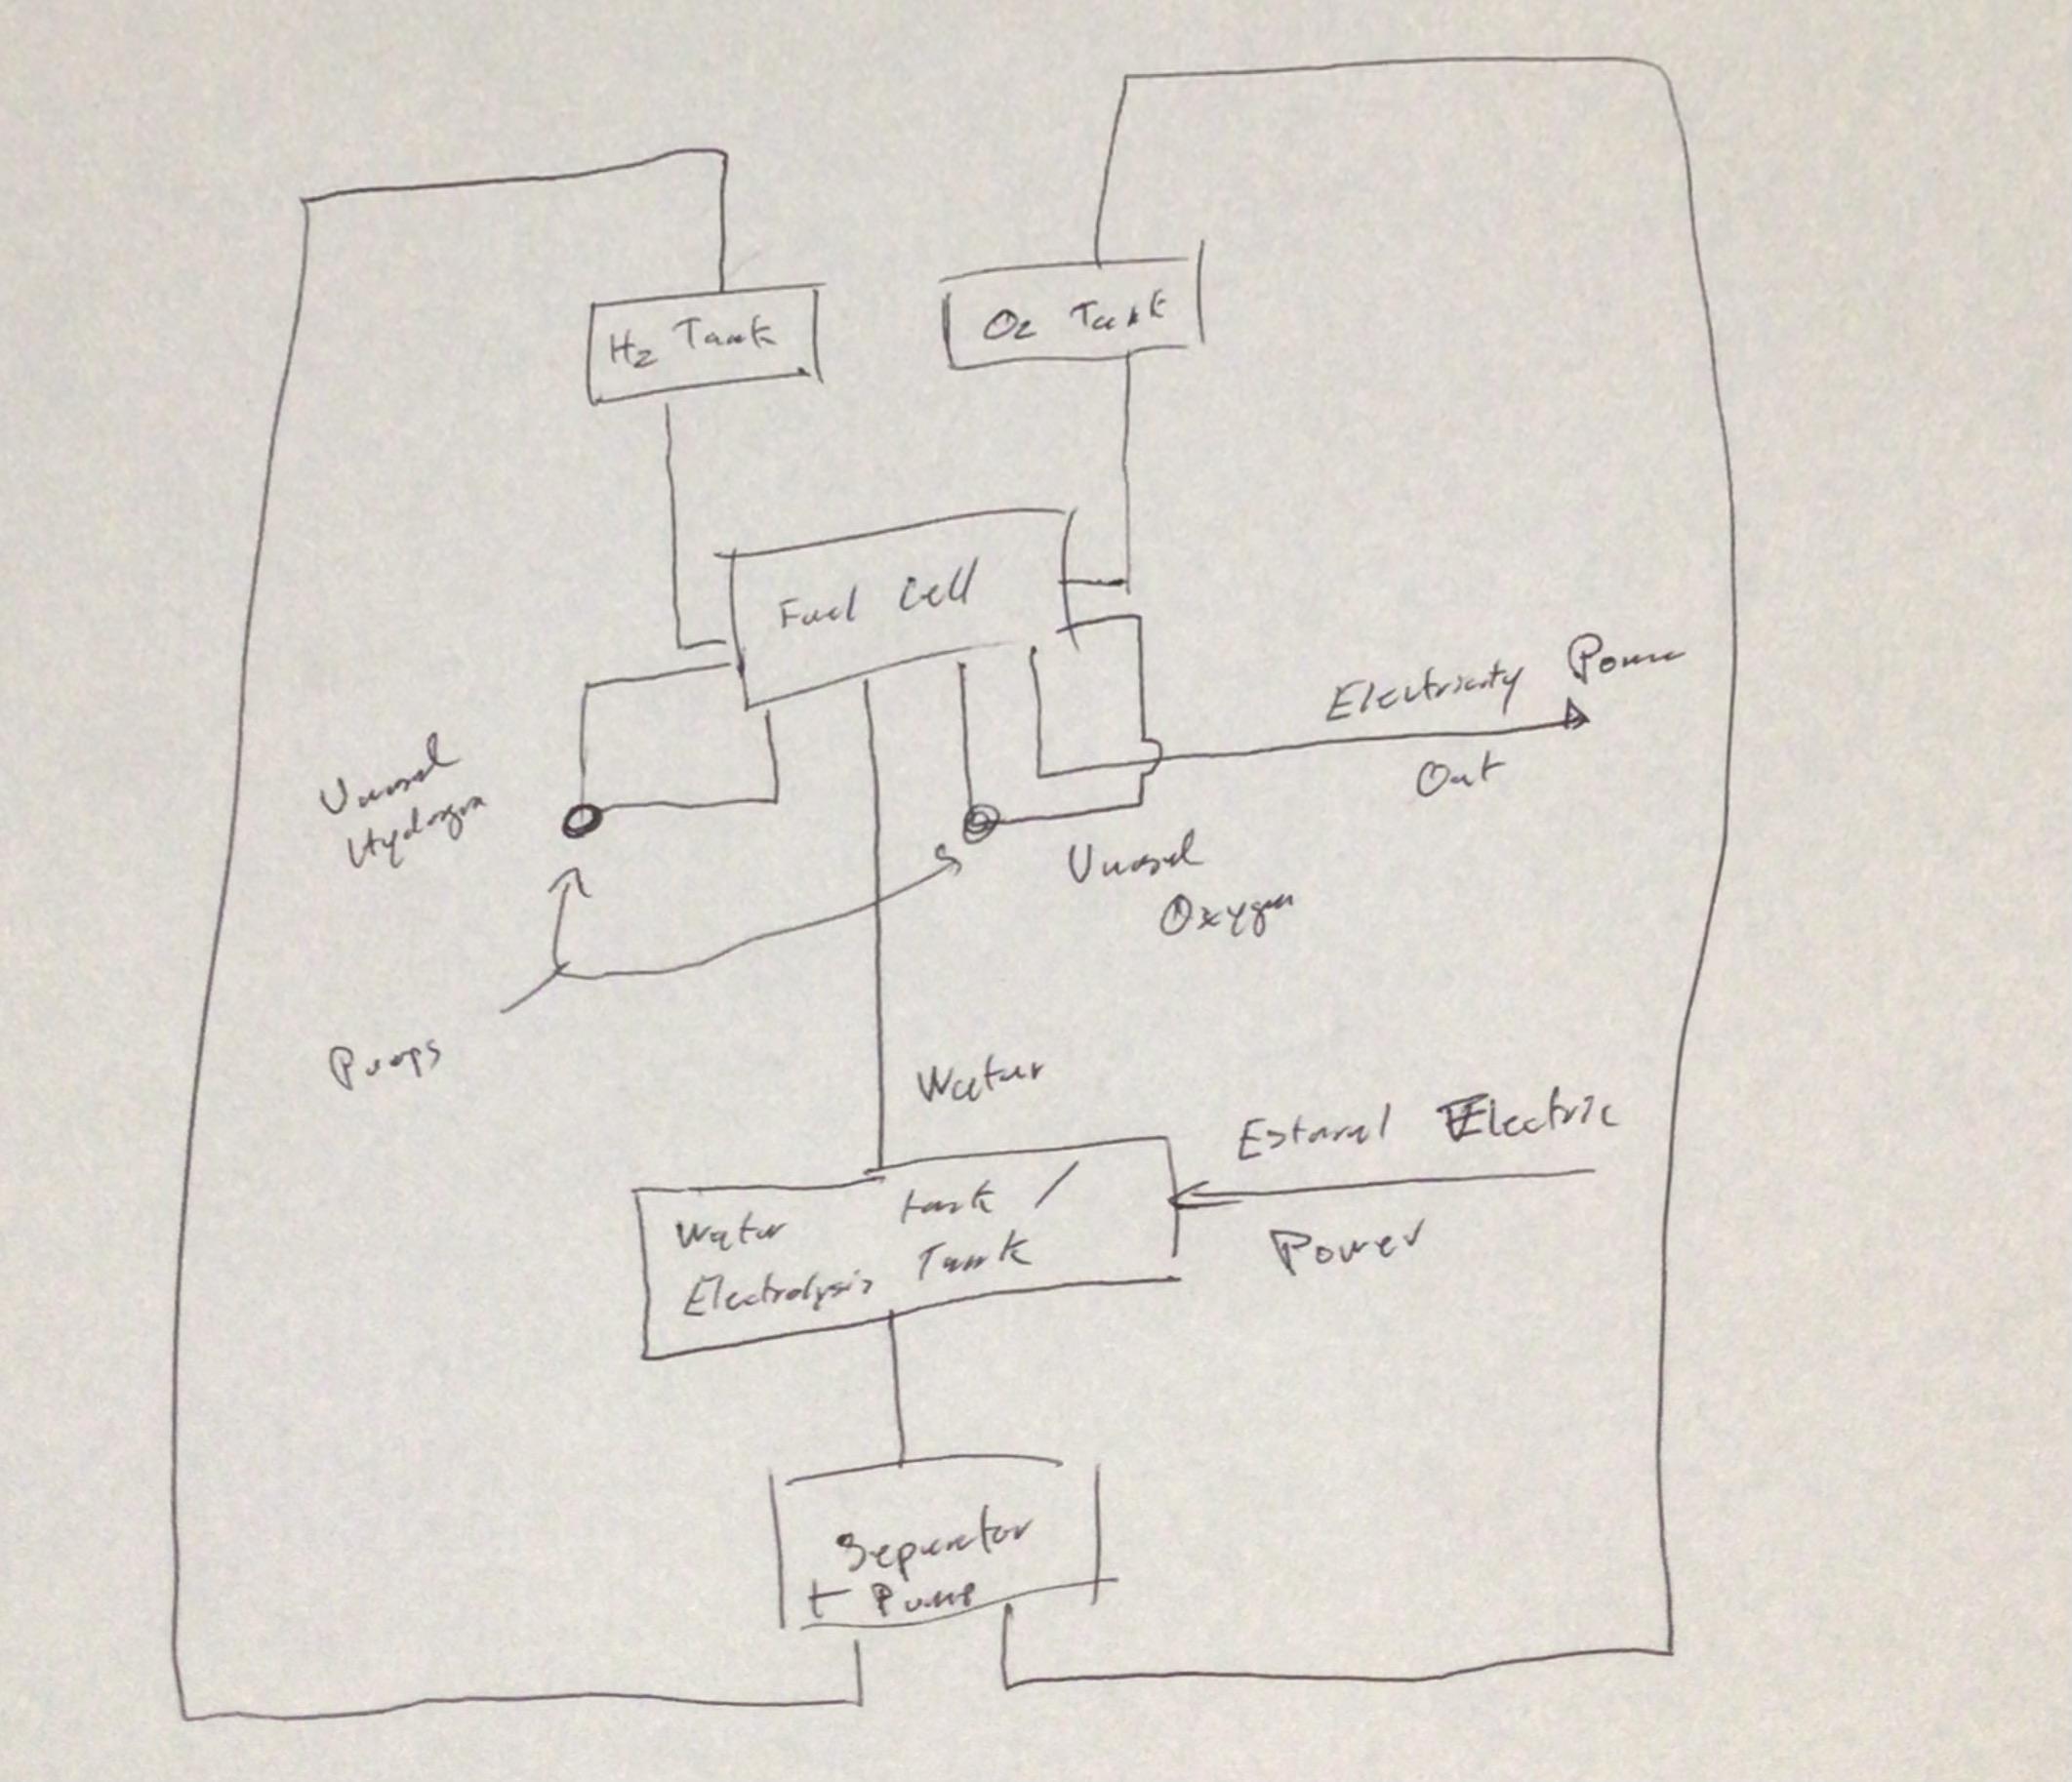 H2 Tank
O2 Tank
Fuel Cell
Electricity Power
Out
Unused
Hydrogen
Unused
Oxygen
Pumps
Water
External Electric
Power
Water tank /
Electrolysis Tank
Separator
+ Pump